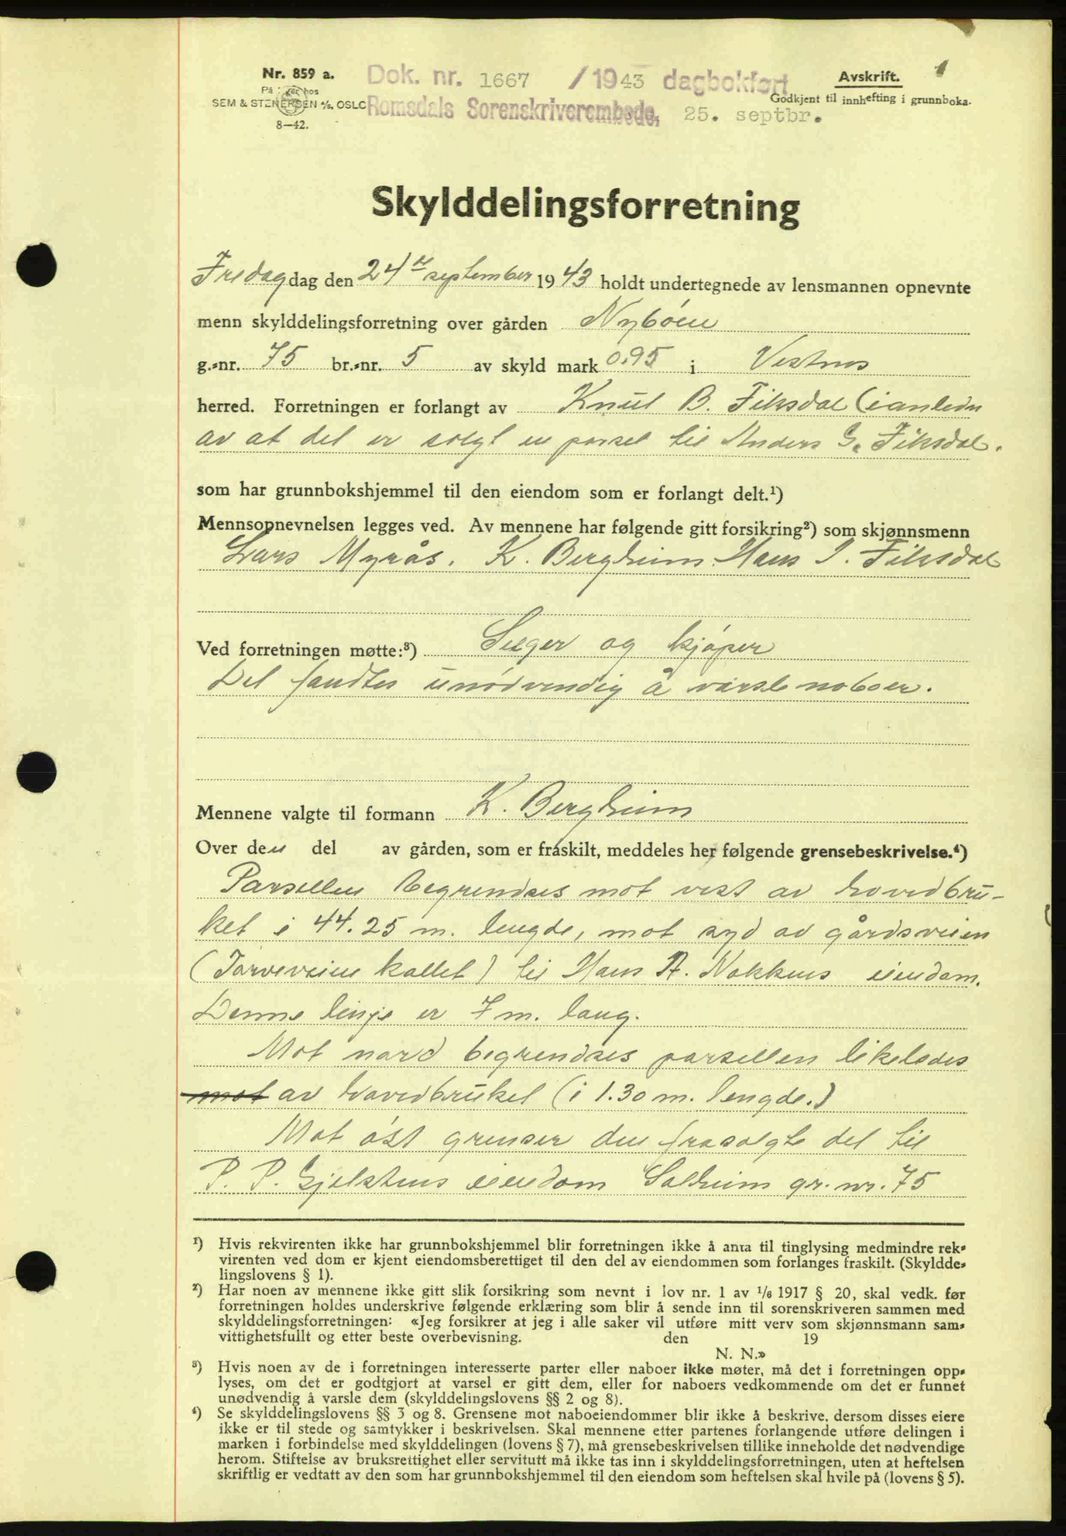 Nr. 859 a.
SEM & STENERSEN A/S, OSLO
8—42.
Dok. nr. 1667 /1943 dagbokført
Romsdals Sorenskriverembede, 25. septbr.
Avskrift. 1
Godkjent til innhefting i grunnboka.
Skylddelingsforretning
Fredag dag den 24de september 1943 holdt undertegnede av lensmannen opnevnte
menn skylddelingsforretning over gården Nybøen
g.-nr. 75 br.-nr. 5 av skyld mark 0.95 i Vestnes
herred. Forretningen er forlangt av Knut B. Fiksdal (i anledn
av at det er solgt en parsel til Anders G. Fiksdal.
som har grunnbokshjemmel til den eiendom som er forlangt delt.¹)
Mennsopnevnelsen legges ved. Av mennene har følgende gitt forsikring²) som skjønnsmenn
Lars Myrås. K. Bergheim. Hans I. Fiksdal
Ved forretningen møtte:³) Selger og kjøper
Det fandtes unødvendig å varsle naboer.
Mennene valgte til formann K. Bergheim
Over den del av gården, som er fraskilt, meddeles her følgende grensebeskrivelse.⁴)
Parsellen begrendses mot vest av hovedbru-
ket i 44.25 m. lengde, mot syd av gårdsveien
(Torveveien kallet) til Hans A. Nakkens eiendom.
Denne linje er 7 m. lang.
Mot nord begrendses parsellen likeledes
mot av hovedbruket (i 1.30 m. lengde.)
Mot øst grenser den frasolgte del til
P. P. Gjelstens eiendom Solheim gr. nr. 75
¹) Hvis rekvirenten ikke har grunnbokshjemmel blir forretningen ikke å anta til tinglysing medmindre rek-
virenten ved dom er kjent eiendomsberettiget til den del av eiendommen som forlanges fraskilt. (Skyldde-
lingslovens § 1).
²) Har noen av mennene ikke gitt slik forsikring som nevnt i lov nr. 1 av 1/6 1917 § 20, skal vedk. før
forretningen holdes underskrive følgende erklæring som blir å sende inn til sorenskriveren sammen med
skylddelingsforretningen: «Jeg forsikrer at jeg i alle saker vil utføre mitt verv som skjønnsmann sam-
vittighetsfullt og etter beste overbevisning. den 19
N. N.»
³) Hvis noen av de i forretningen interesserte parter eller naboer ikke møter, må det i forretningen opp-
lyses, om det er godtgjort at varsel er gitt dem, eller for naboers vedkommende om det er funnet
unødvendig å varsle dem (skylddelingslovens §§ 2 og 8).
⁴) Se skylddelingslovens §§ 3 og 8. Grensene mot naboeiendommer blir ikke å beskrive, dersom disses eiere
ikke er til stede og samtykker i beskrivelsen. Skal mennene etter partenes forlangende utføre delingen i
marken i forbindelse med skylddelingen (lovens § 7), må grensebeskrivelsen tillike inneholde det nødvendige
herom. Stiftelse av bruksrettighet eller servitutt må ikke tas inn i skylddelingsforretningen, uten at heftelsen
skriftlig er vedtatt av den som har grunnbokshjemmel til den eiendom som heftelsen skal hvile på (lovens § 5).